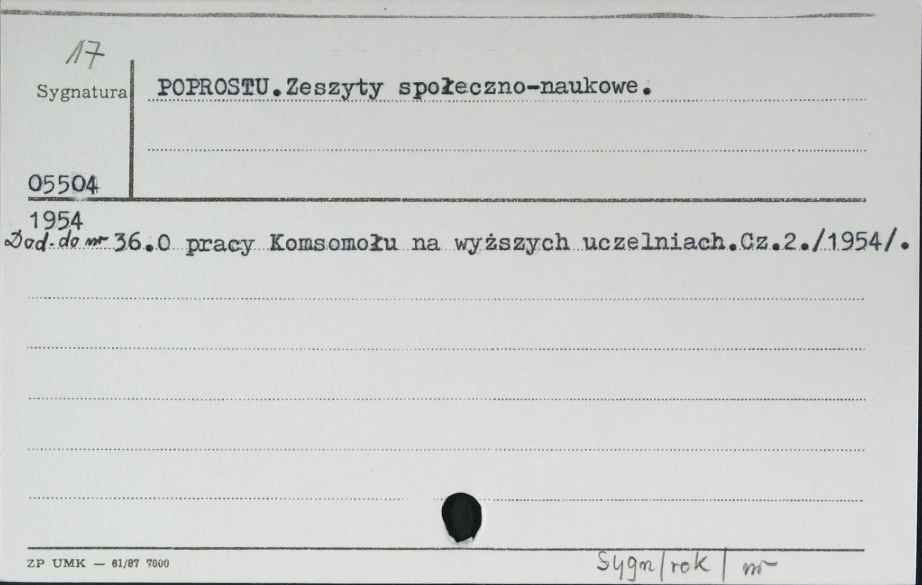 17
Sygnatura
POPROSTU.Zeszyty społeczno-naukowe.
05504
1954
Dod. do nr 36.O pracy Komsomołu na wyższych uczelniach.Cz.2./1954/.
ZP UMK — 61/87 7000
Sygn/rok/nr